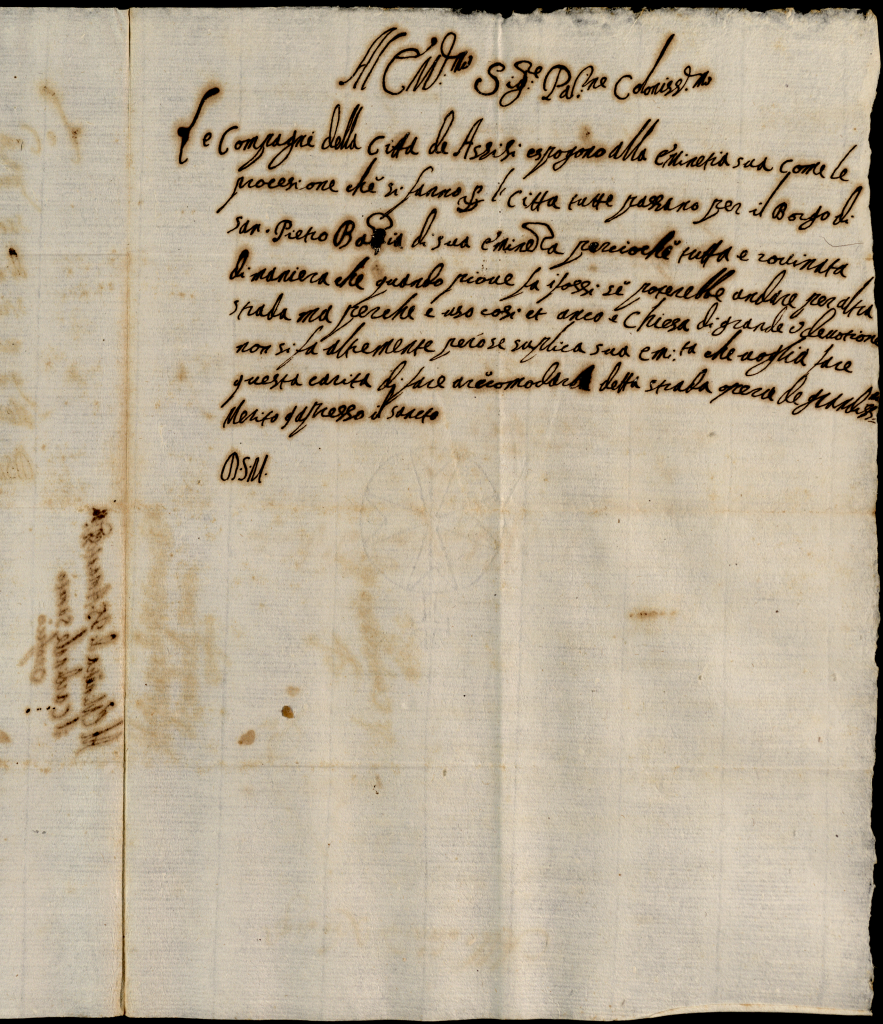 All Em.mo Sig.re Pad.ne Colendiss.mo
Le Compagnie della Citta de Assisi espogono alla eminetia sua come le
procesione che si fanno p l. Citta tutte passano per il Borgo di
san. Pietro Badia di sua eminetia percioche tutta e rovinata
di maniera che quando piove fa i fossi se poterebbe andare per altra
strada ma perche e uso cosi et anco e Chiesa di grande devotione
non si fa altemente pero se suplica sua emi.ta che voglia fare
questa carita di fare accomodare detta strada opera de grandiss.mo
Merito apresso il sancto
D.S.M.